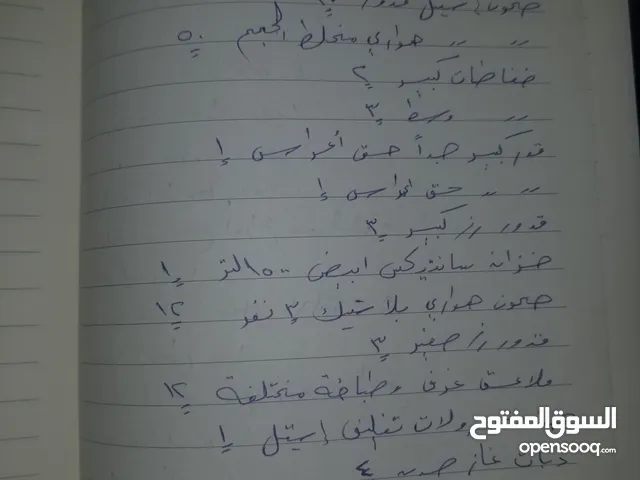 صحون استيل قدور
〃 〃 هواري مختلط الحجم ٥٠
ضغاطات كبير ٢
〃 وسط ٣
قدر كبير جداً حق أعراس ١
〃 〃 حق اعراس ١
قدور رز كبير ٣
خزانه ساندويش ابيض ١٥٠٠ لتر ١
صحون هواري بلاستيك ٣ نفر ١٢
قدور رز صغير ٣
ملاعق غرف وطباخة مختلفة ١٢
ولات تغليف إستيل ١
دبات غاز ٤
السوق المفتوح
opensooq.com